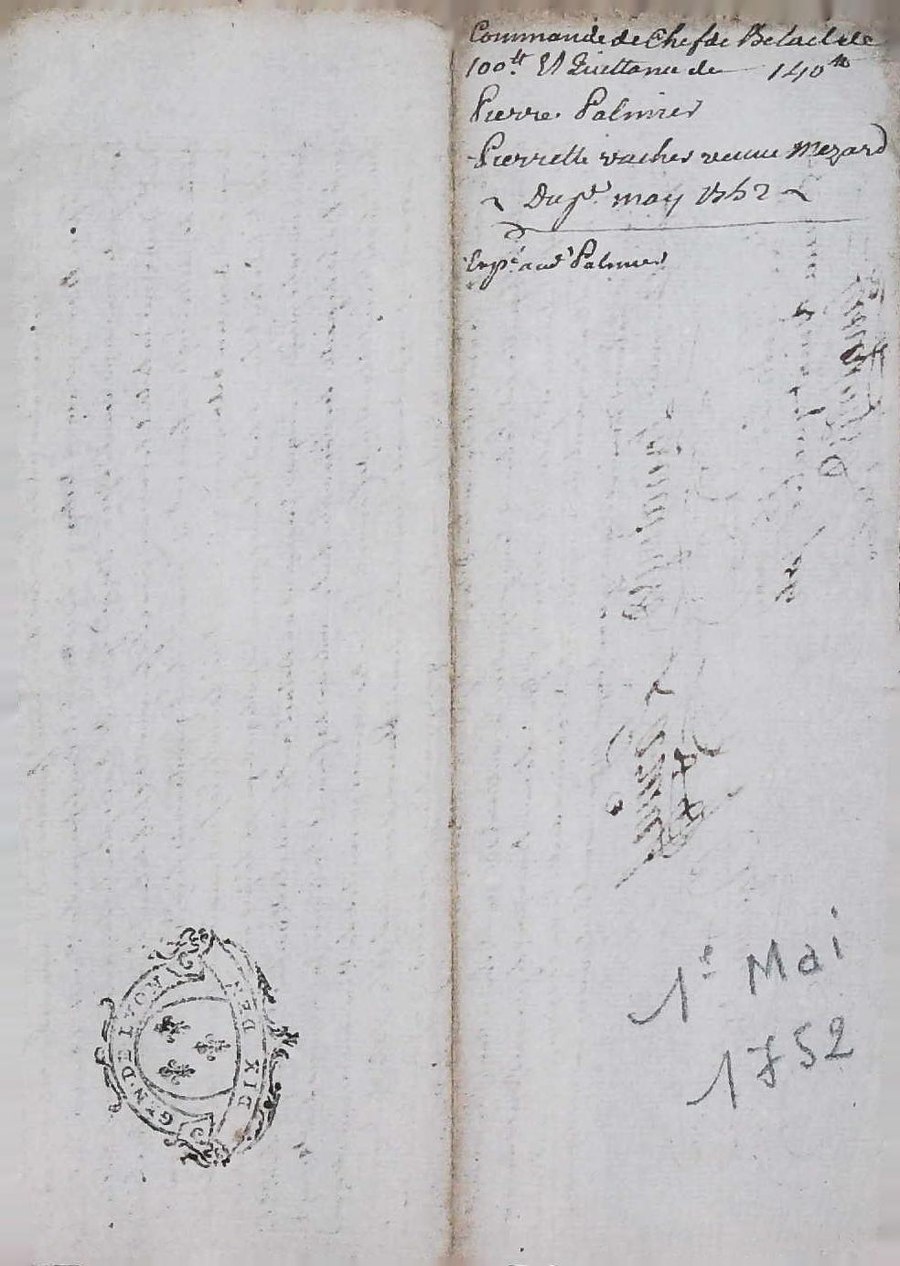 Commande de Chef de Betail de
100.ᵗᵗ Et Quittance de — 140ᵗᵗ
Pierre Palmier
Pierrette vacher veuve Mezard
~ Du pʳ. may 1752 ~
Expᵉ́ aud Palmier
1ᵉ Mai
1752
GEN. DE
DIX DEN